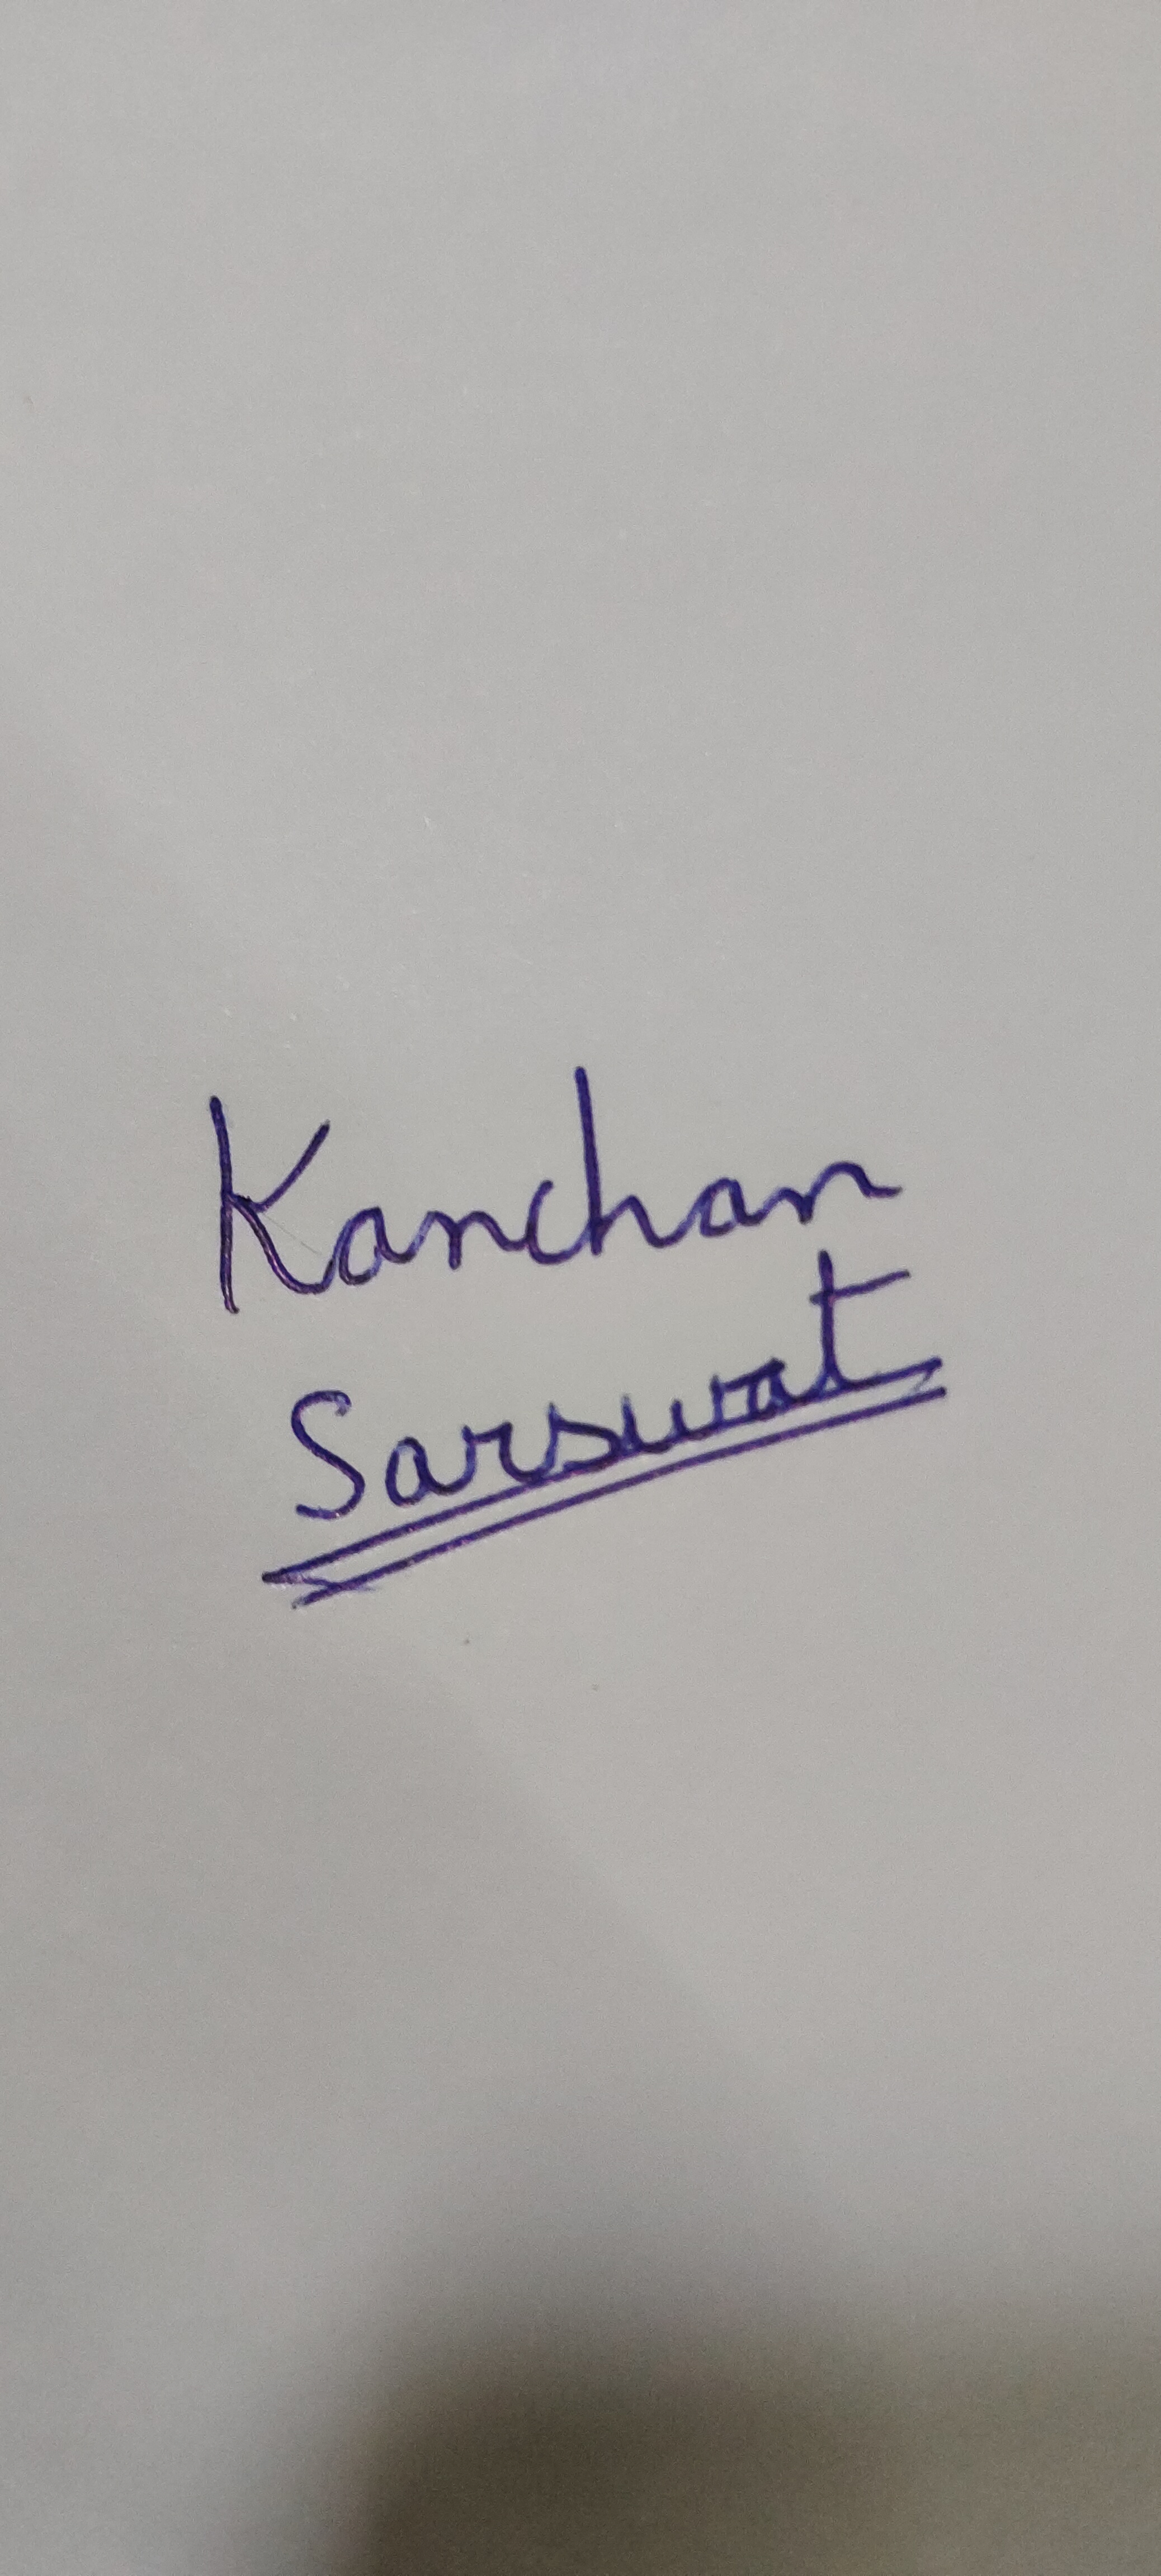 Kanchan
Sarswat